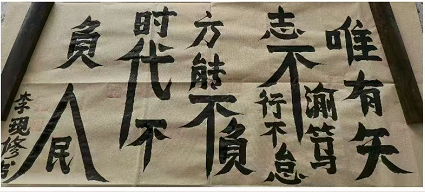 唯有矢
志不渝笃行不怠
方能不负
时代不
負人民
李现修书